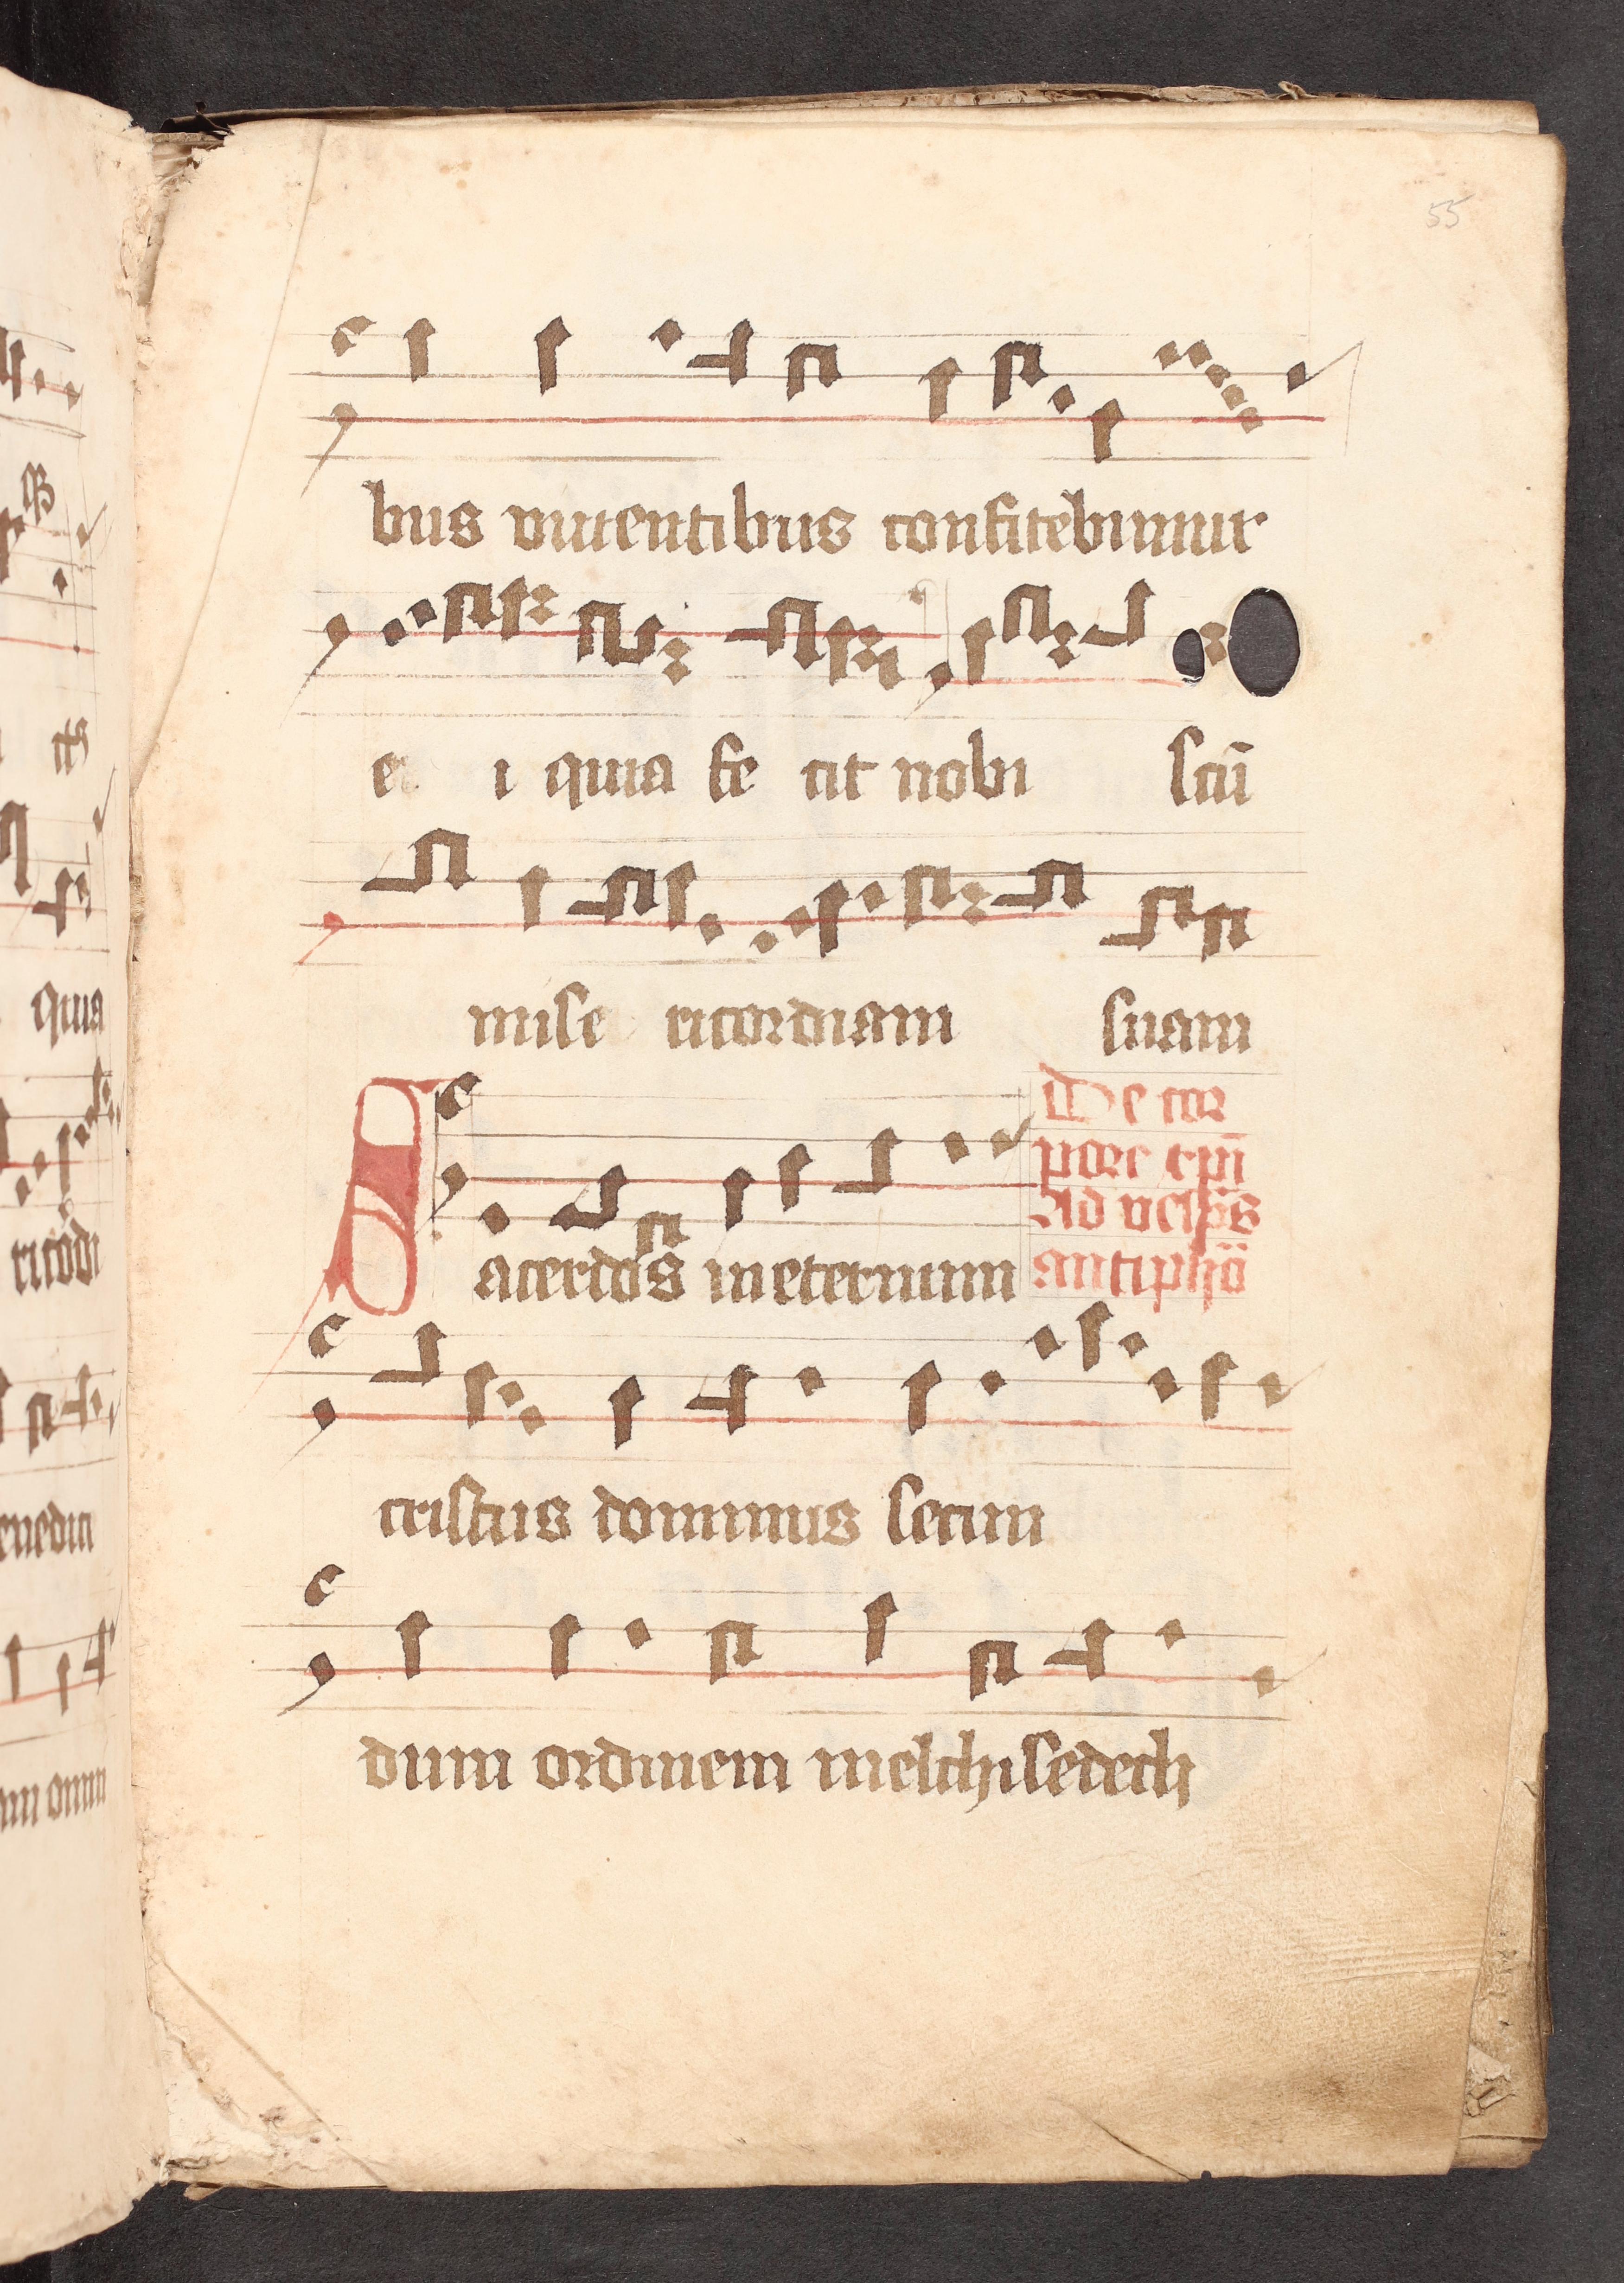 55
bus viuentibus confitebimur
e i quia fe cit nobi scū
mise ricordiam suam
De cor
pore cpī
Ad vesp̄s
antiphō
Sacerdos in eternum
cristus dominus secun
dum ordinem melchisedech
qua
ricordi
enedici